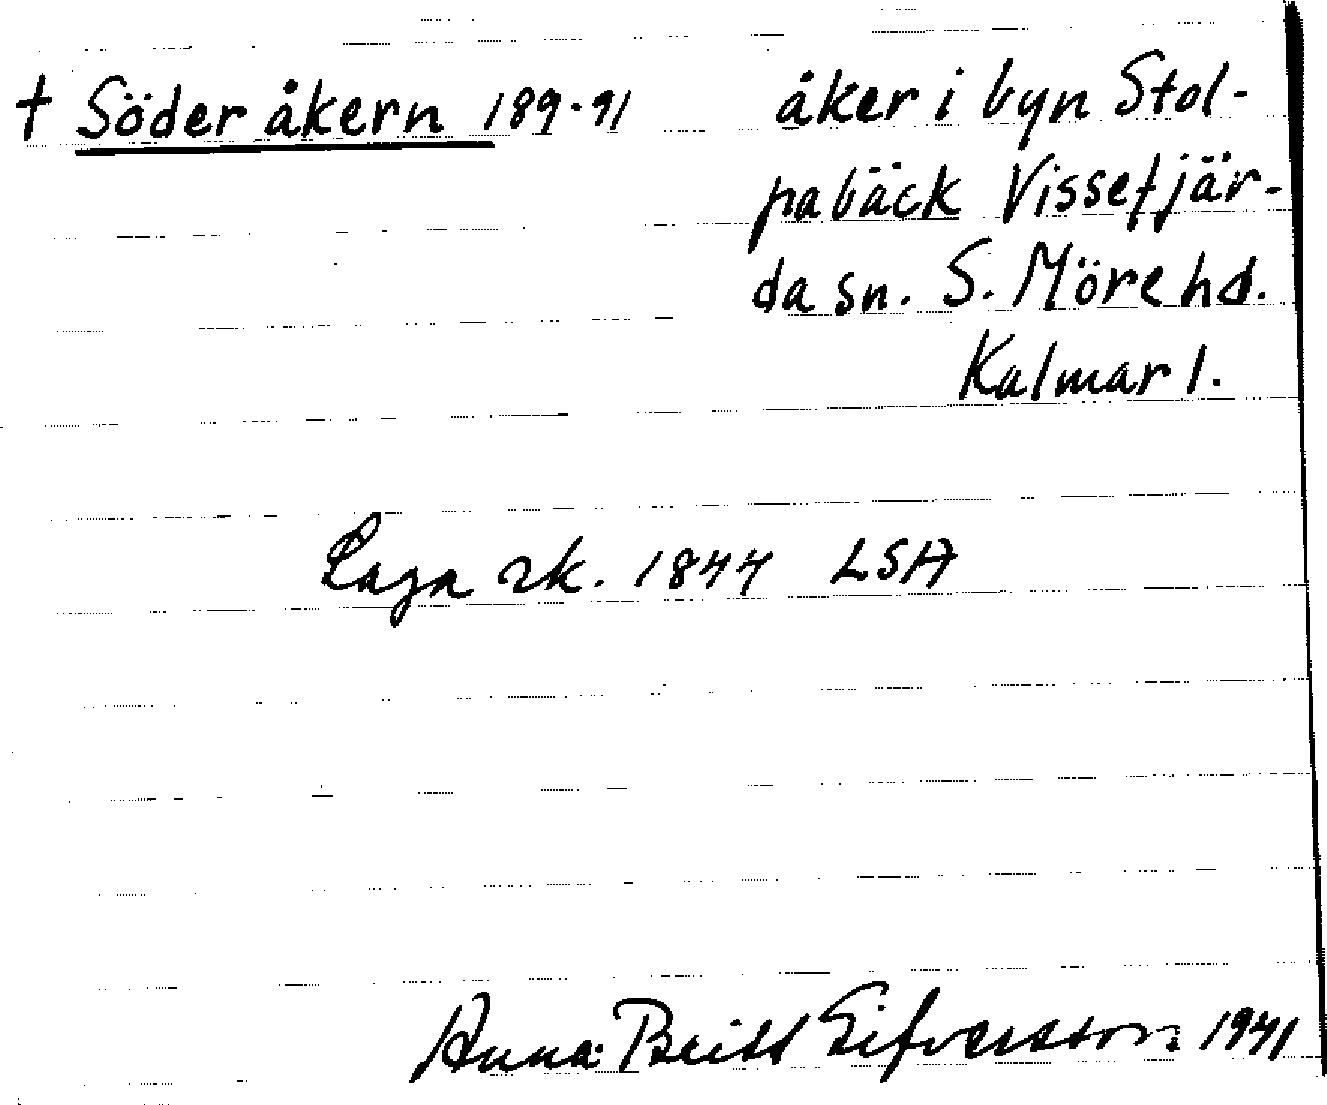 † Söder åkern 189-91 åker i byn Stol-
pabäck Vissefjär-
da sn. S. Möre hd.
Kalmar l.
Laga sk. 1844 LSA
Anna-Britt Sifversson 1941